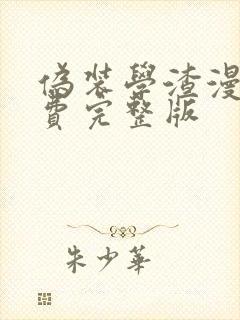 偽裝學渣漫
費完整版
朱少華